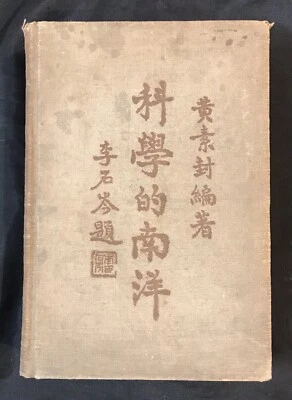 黄素封編著
科學的南洋
李石岑題